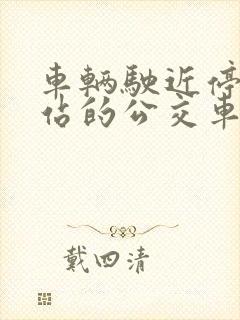 車輛駛近停
佔的公交車
戴四清